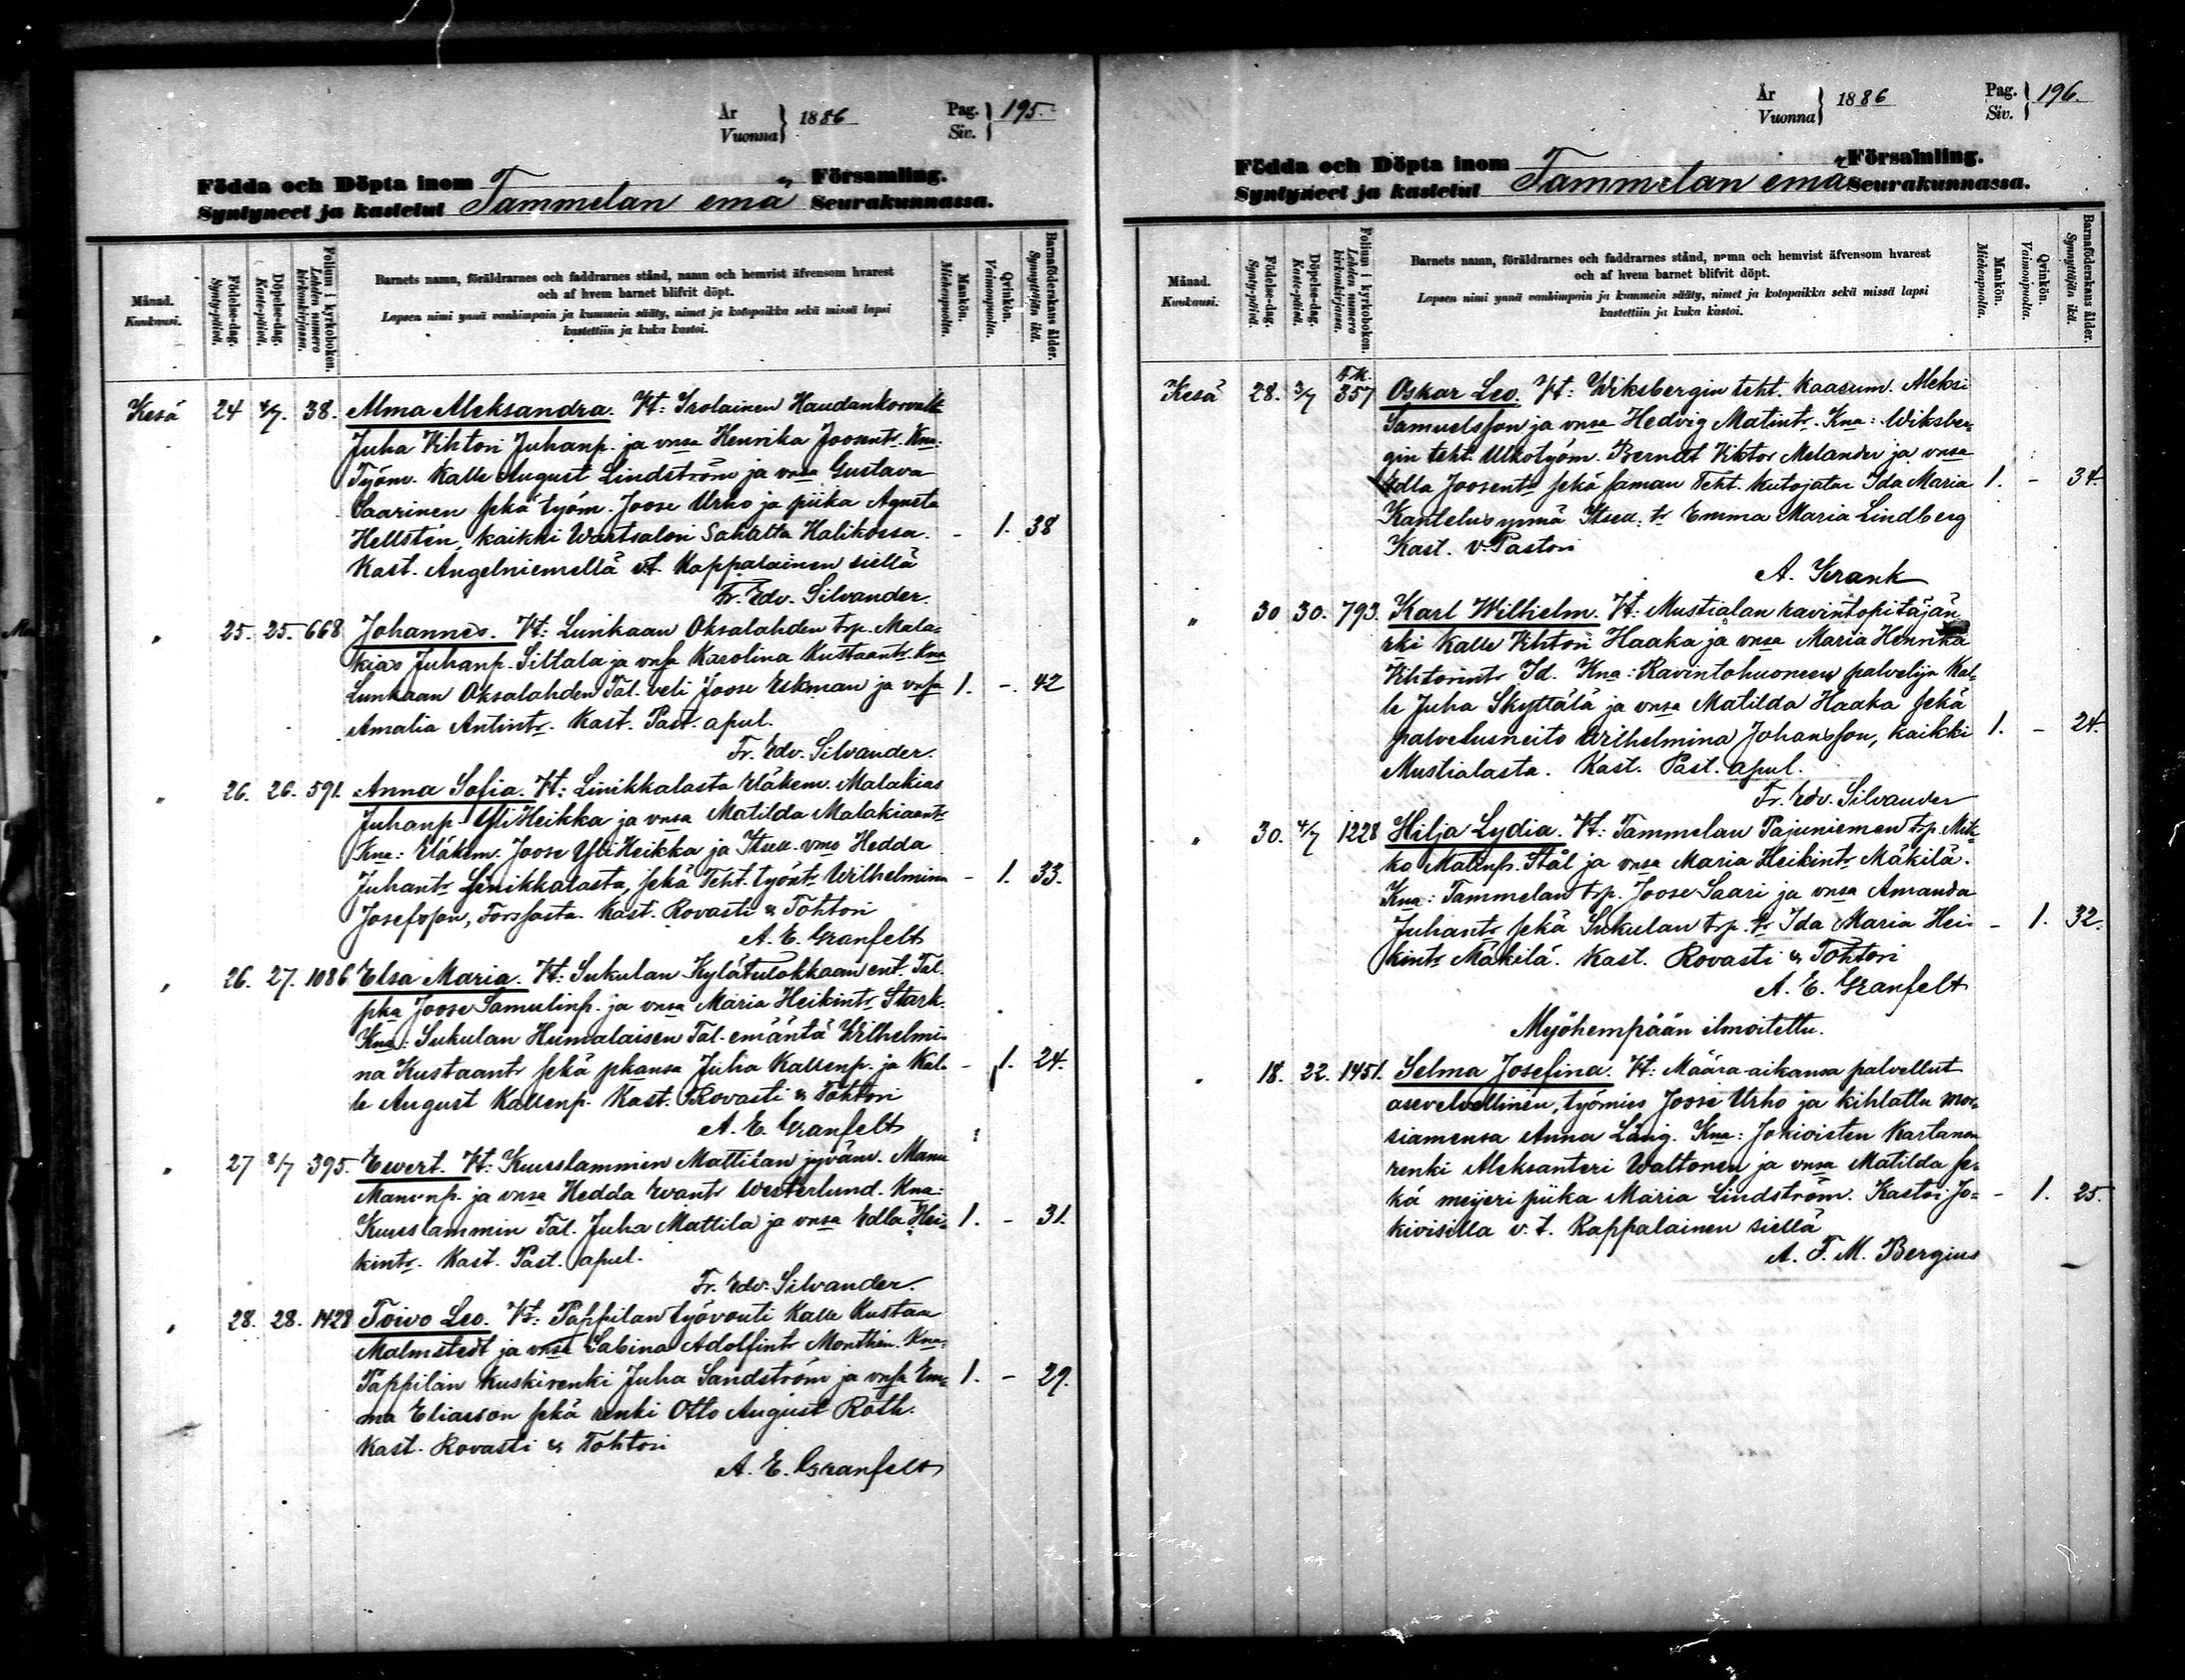 År
Vuonna } 1886
Pag.
Siv. } 195.
Födda och Döpta inom Församling.
Syntyneet ja kastetut Tammelan emä Seurakunnassa.
Månad.
Kuukausi.
Födelse-dag.
Synty-päivä.
Döpelse-dag.
Kaste-päivä.
Folium i kyrkoboken.
Lehden numero kirkonkirjassa.
Barnets namn, föräldrarnes och faddrarnes stånd, namn och hemvist äfvensom hvarest
och af hvem barnet blifvit döpt.
Lapsen nimi ynnä vanhimpain ja kummein sääty, nimet ja kotopaikka sekä missä lapsi
kastettiin ja kuka kastoi.
Mankön.
Miehenpuolta.
Qvinkön.
Vaimonpuolta.
Barnaföderskans ålder.
Synnyttäjän ikä.
Kesä 24 4/7. 38. Alma Aleksandra. Vt: Irolainen Haudankorvalt
Juha Vihtori Juhanp. ja vnsa Henrika Joosentr. Kna:
Työm. Kalle August Lindström ja vnsa Gustava
Saarinen sekä työm. Joose Urho ja piika Agneta
Hellstén, kaikki Wartsalon Sahalta Halikossa. - 1. 38
Kast. Angelniemellä vt. Kappalainen siellä
Fr. Edv. Silvander.
" 25. 25. 668 Johannes. Vt: Lunkaan Oksalahden trp. Mala-
kias Juhanp. Siltala ja vnsa Karolina Kustaantr. Kna
Lunkaan Oksalahden Tal. veli Joose Eskman ja vnsa 1. -. 42
Amalia Antintr. Kast. Past. apul.
Fr. Edv. Silvander.
" 26. 26. 591. Anna Sofia. Vt: Linikkalasta Eläkem. Malakias
Juhanp. YliHeikka ja vnsa Matilda Malakiaantr
Kna: Eläkem. Joose YliHeikka ja Itsell. vmo Hedda
Juhantr Linikkalasta, sekä Teht. työntr Wilhelmina - 1. 33.
Josefsson, Forssasta. Kast. Rovasti & Tohtori
A. E. Granfelt
" 26. 27. 1086 Elsa Maria. Vt: Sukulan Kylätulokkaan ent. Tal.
pka Joose Samulinp. ja vnsa Maria Heikintr Stark.
Kna: Sukulan Humalaisen Tal. emäntä Wilhelmi-
na Kustaantr sekä pkansa Juha Kallenp. ja Kal- - 1. 24.
le August Kallenp. Kast. Rovasti & Tohtori
A. E. Granfelt
" 27 8/7 395. Ewert. Vt: Kuuslammin Mattilan jyväm. Manu
Manunp. ja vnsa Hedda Evantr Westerlund. Kna:
Kuuslammin Tal. Juha Mattila ja vnsa Edla Hei- 1. - 31.
kintr. Kast. Past. apul.
Fr. Edv. Silvander.
" 28. 28. 1428 Toivo Leo. Vt: Pappilan työvouti Kalle Kustaa
Malmstedt ja vnsa Sabina Adolfintr Monthén. Kna:
Pappilan kuskirenki Juha Sandström ja vnsa Em- 1. - 29.
ma Eliasson sekä renki Otto August Roth.
Kast. Rovasti & Tohtori
A. E. Granfelt
År
Vuonna } 1886
Pag.
Siv. } 196.
Födda och Döpta inom Församling.
Syntyneet ja kastetut Tammelan emä Seurakunnassa.
Månad.
Kuukausi.
Födelse-dag.
Synty-päivä.
Döpelse-dag.
Kaste-päivä.
Folium i kyrkoboken.
Lehden numero kirkonkirjassa.
Barnets namn, föräldrarnes och faddrarnes stånd, namn och hemvist äfvensom hvarest
och af hvem barnet blifvit döpt.
Lapsen nimi ynnä vanhimpain ja kummein sääty, nimet ja kotopaikka sekä missä lapsi
kastettiin ja kuka kastoi.
Mankön.
Miehenpuolta.
Qvinkön.
Vaimonpuolta.
Barnaföderskans ålder.
Synnyttäjän ikä.
Kesä 28. 3/7 F.K. 357 Oskar Leo. Vt: Wiksbergin teht. kaasum. Aleksi
Samuelsson ja vnsa Hedvig Matintr. Kna: Wiksber-
gin teht. Ulkotyöm. Berndt Viktor Melander ja vnsa
Edla Joosentr sekä saman Teht. kutojatar Ida Maria 1. - 34.
Kantelus ynnä Itsell. tr Emma Maria Lindberg
Kast. v. Pastori
A. Krank
" 30 30. 793. Karl Wilhelm. Vt: Mustialan ravintopitäjän
rki Kalle Vihtori Haaka ja vnsa Maria Henrika
Vihtorintr Id. Kna: Ravintohuoneen palvelija Kal-
le Juha Skyttälä ja vnsa Matilda Haaka sekä
palvelusneito Wilhelmina Johansson, kaikki 1. - 24.
Mustialasta. Kast. Past. apul.
Fr. Edv. Silvander
" 30. 4/7 1228 Hilja Lydia. Vt: Tammelan Pajuniemen trp. Mik-
ko Matinp. Stål ja vnsa Maria Heikintr Mäkilä.
Kna: Tammelan trp. Joose Saari ja vnsa Amanda
Juhantr sekä Sukulan trp. tr Ida Maria Hei- - 1. 32.
kintr Mäkilä. Kast. Rovasti & Tohtori
A. E. Granfelt
Myöhempään ilmoitettu.
" 18. 22. 1451. Selma Josefina. Vt: Määrä-aikansa palvellut
asevelvollinen, työmies Joose Urho ja kihlattu mor-
siamensa Anna Lång. Kna: Jokioisten Kartanon
renki Aleksanteri Waltonen ja vnsa Matilda se-
kä meijeri piika Maria Lindström. Kastoi Jo- - 1. 25.
kioisilla v. t. Kappalainen siellä
A. F. M. Bergius